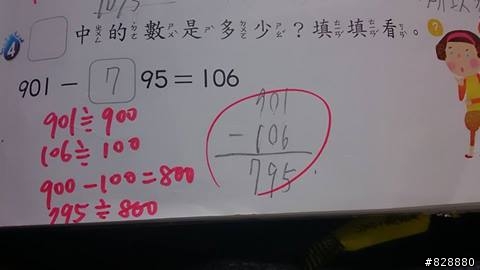 1095
4 □中的數是多少？填填看。
901 － 7 95＝106
901≒900
106≒100
900－100＝800
795≒800
901
－ 106
795
#828880